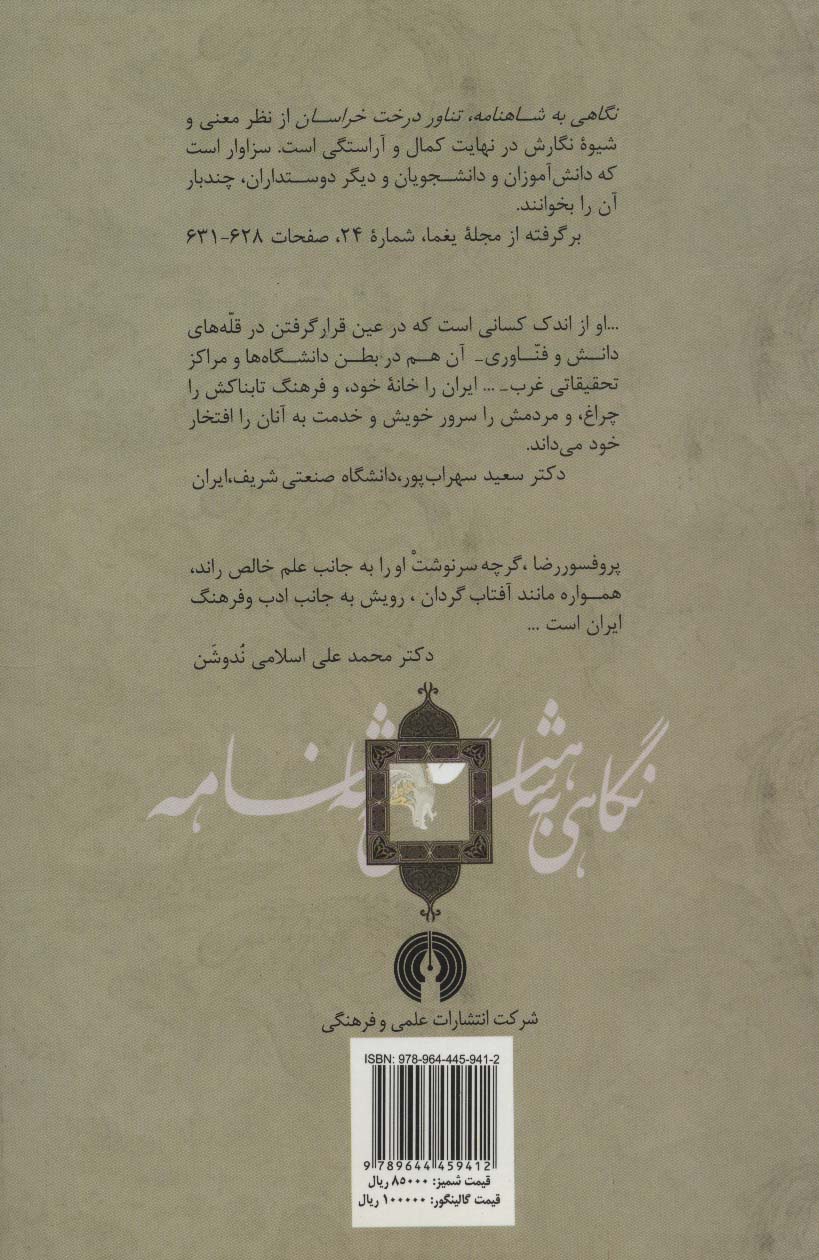 نگاهی به شاهنامه، تناور درخت خراسان از نظر معنی و
شیوۀ نگارش در نهایت کمال و آراستگی است. سزاوار است
که دانش‌آموزان و دانشجویان و دیگر دوستداران، چندبار
آن را بخوانند.
برگرفته از مجلۀ یغما، شمارۀ ۲۴، صفحات ۶۲۸-۶۳۱
...او از اندک کسانی است که در عین قرارگرفتن در قلّه‌های
دانش و فنّاوری- آن هم در بطن دانشگاه‌ها و مراکز
تحقیقاتی غرب- ... ایران را خانۀ خود، و فرهنگ تابناکش را
چراغ، و مردمش را سرور خویش و خدمت به آنان را افتخار
خود می‌داند.
دکتر سعید سهراب‌پور،دانشگاه صنعتی شریف،ایران
پروفسوررضا ،گرچه سرنوشتْ او را به جانب علم خالص راند،
همواره مانند آفتاب گردان ، رویش به جانب ادب وفرهنگ
ایران است ...
دکتر محمد علی اسلامی نُدوشَن
نگاهی به شاهنامه
شرکت انتشارات علمی و فرهنگی
ISBN: 978-964-445-941-2
9 789644 459412
قیمت شمیز: ۸۵۰۰۰ ریال
قیمت گالینگور: ۱۰۰۰۰۰ ریال